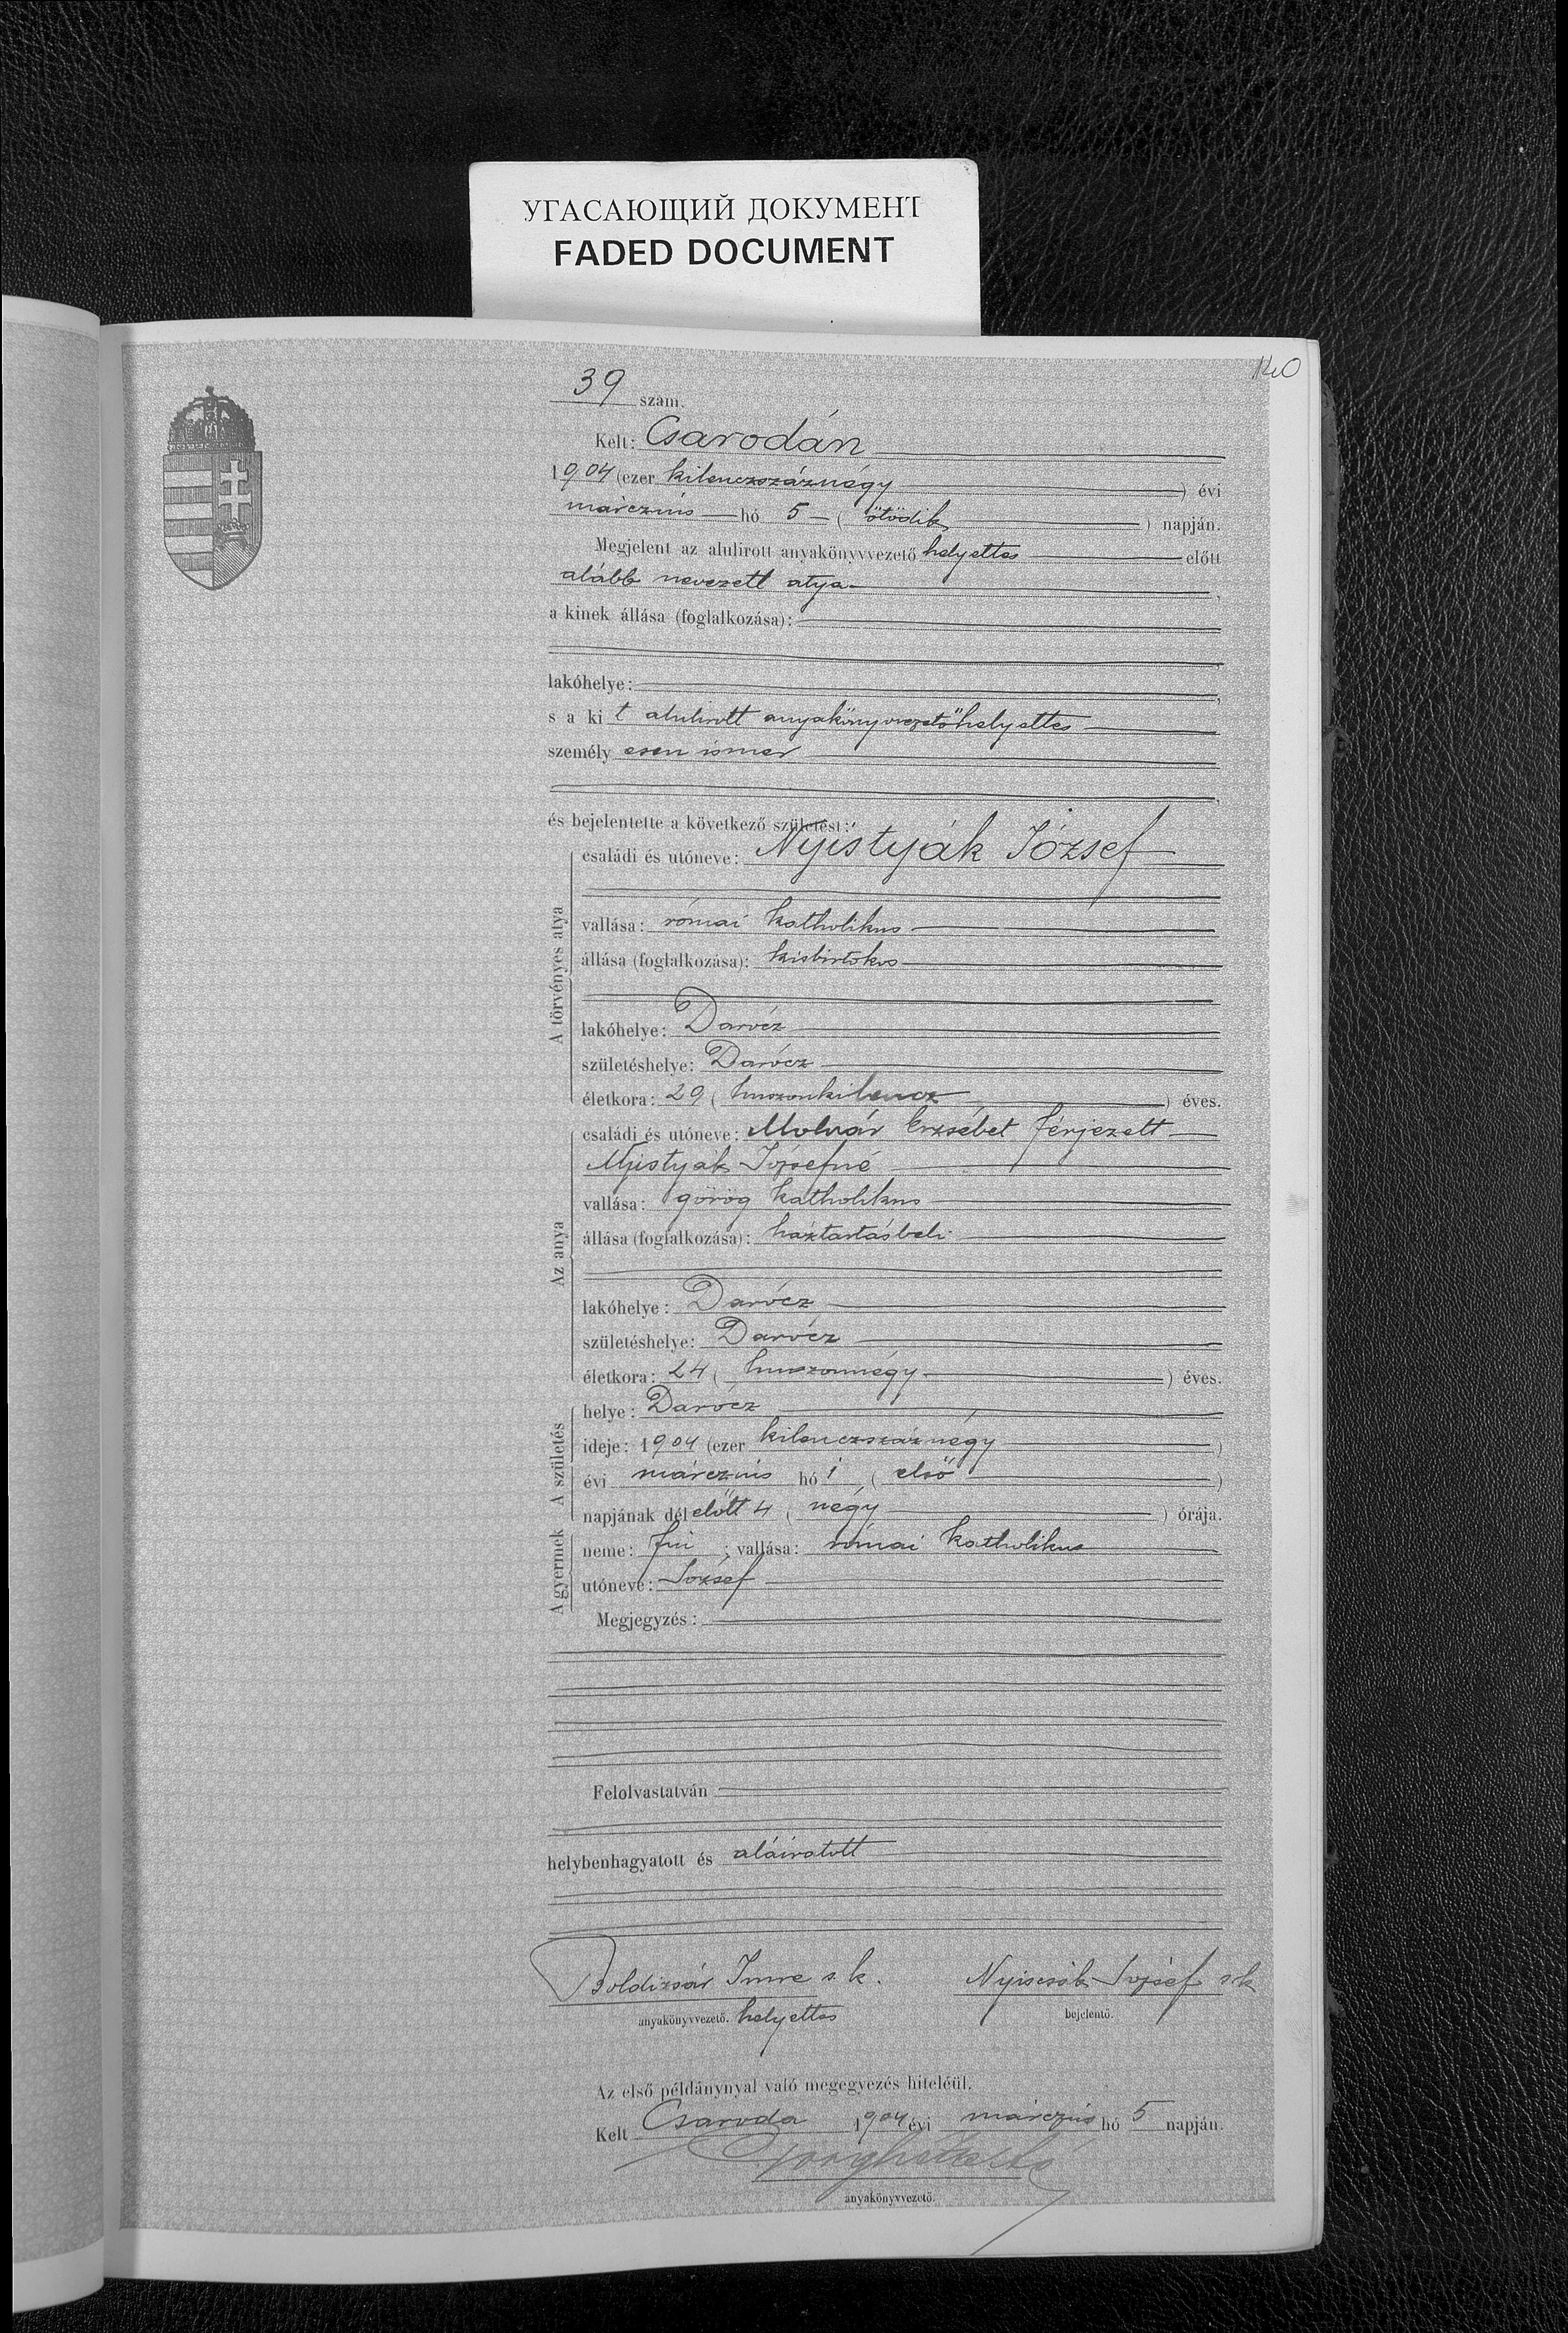 УГАСАЮЩИЙ ДОКУМЕНТ
FADED DOCUMENT
140
39 szám.
Kelt: Csarodán
1904 (ezer kilenczszáznégy ) évi
márczius hó 5 ( ötödik ) napján.
Megjelent az alulirott anyakönyvvezető helyettes előtt
alább nevezett atya,
a kinek állása (foglalkozása):
lakóhelye:
s a kit alulirott anyakönyvvezetőhelyettes
személyesen ismer
és bejelentette a következő születést:
A törvényes atya
családi és utóneve: Nyistyák József
vallása: római katholikus
állása (foglalkozása): kisbirtokos
lakóhelye: Darócz
születéshelye: Darócz
életkora: 29 ( huszonkilencz ) éves.
Az anya
családi és utóneve: Molnár Erzsébet férjezett
Nyistyák Józsefné
vallása: görög katholikus
állása (foglalkozása): háztartásbeli
lakóhelye: Darócz
születéshelye: Darócz
életkora: 24 ( huszonnégy ) éves.
A születés
helye: Darócz
ideje: 1904 (ezer kilenczszáznégy )
évi márczius hó 1 ( első )
napjának délelőtt 4 ( négy ) órája.
A gyermek
neme: fiú; vallása: római katholikus
utóneve: József
Megjegyzés:
Felolvastatván
helybenhagyatott és aláiratott
Boldizsár Imre s. k. Nyiscsák József s k
anyakönyvvezető. helyettes bejelentő.
Az első példánynyal való megegyezés hiteléül.
Kelt Csaroda 1904 évi márczius hó 5 napján.
anyakönyvvezető.